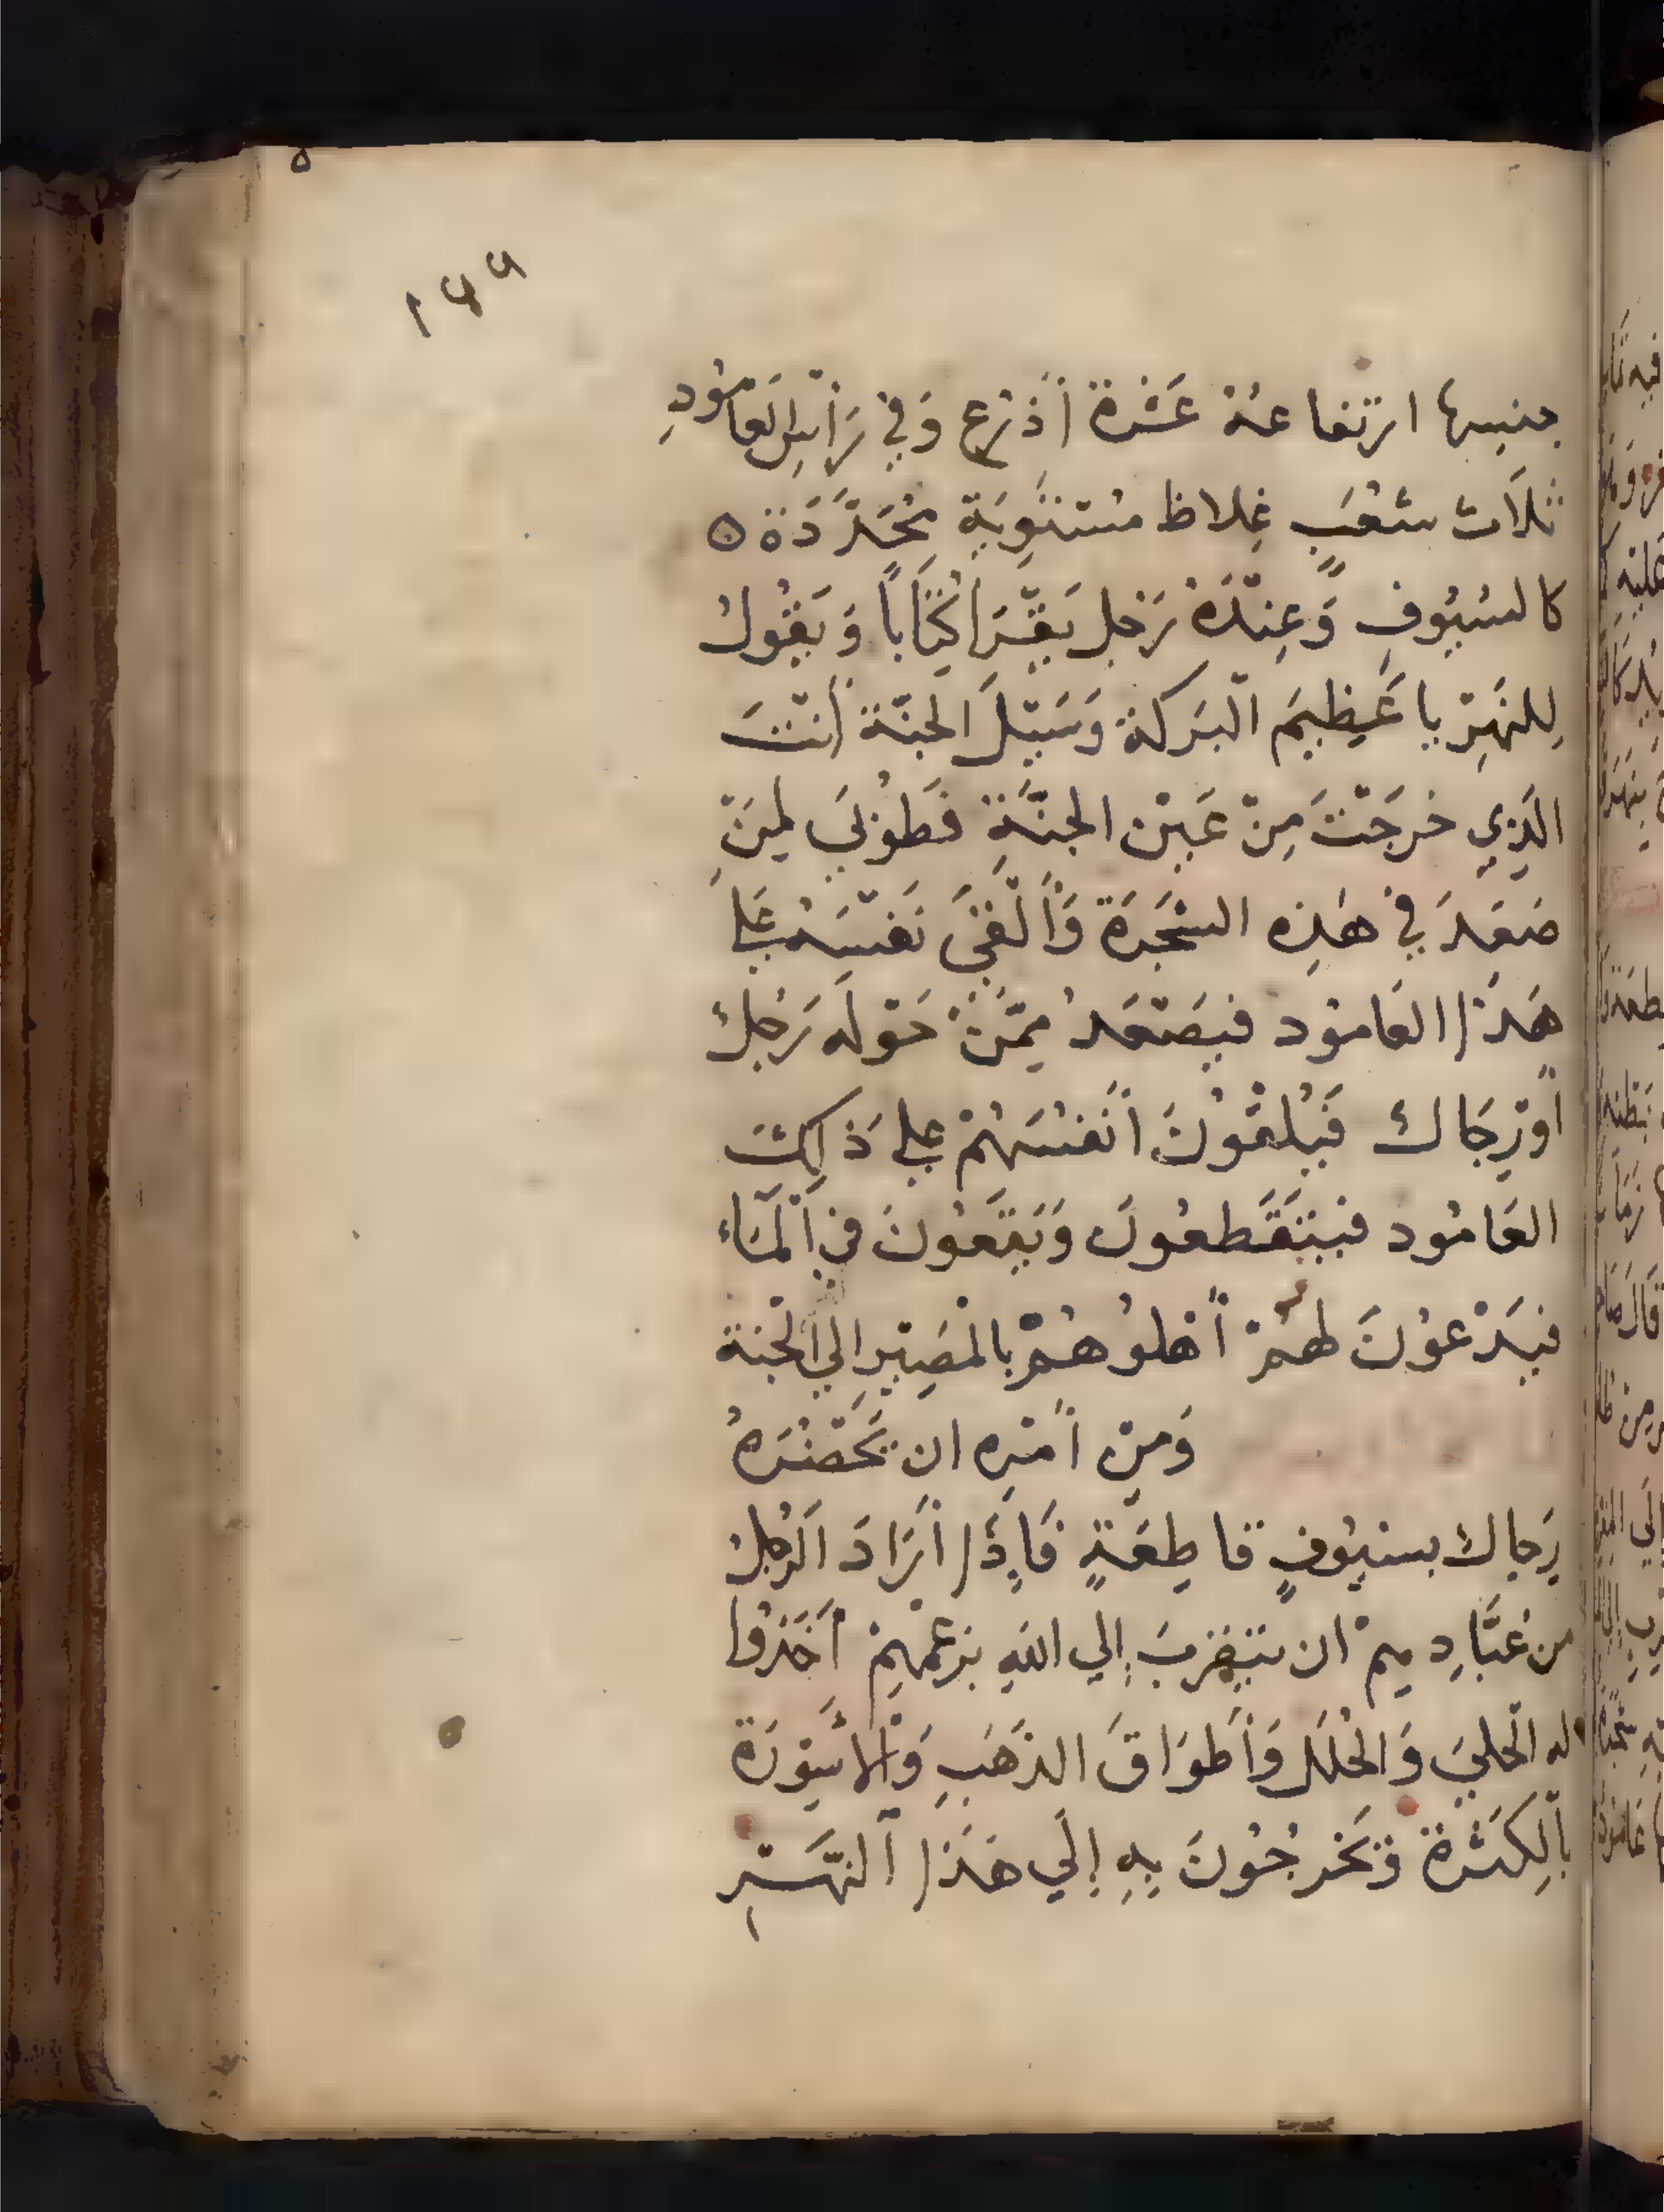 ١٤٩
جنبها ارتفاعهُ عَشْرة أَذْرُع وَفي رَأْسِ العَامُودِ
ثلَاث شُعَبٍ غِلاظ مُسْتَوِيَةٍ مُحَدَّدَة ه
كالسُيُوفِ وَعِنْدَهُ رَجُل يَقْرَا كِتَاباً وَيَقُولُ
لِلنَهْرِ يا عَظِيمَ الْبَرَكة وَسَبِيْلَ الجنّة أَنْتَ
الذِي خَرجَتْ مِنْ عَيْن الجنَّةِ فَطُوْبَي لِمَنْ
صَعَدَ في هَذِه الشَجَرَة وَأَلْقَيَ نَفْسَهُ عَلي
هَذَا العَامُود فيَصْعَدُ مِمَّنْ حَوْلَه رَجُلٌ
أَوْ رِجَالٌ فَيُلْقُوْنَ أَنْفُسَهُمْ عَلي ذَلِكَ
العَامُود فيَتَقَطعُونَ وَيَقَعُونَ في الْمَاء
فيَدْعُوْنَ لهُمْ أَهْلُوهُمْ بالْمَصِيْرِ الي الْجَنة
وَمِنْ أَمْرِه ان يَحْضُرَهُ
رِجالٌ بسُيُوفٍ قاطِعَةٍ فَإِذَا أَرَادَ الرَجُلُ
من عُبَّادِهِمْ ان يَتَقَربَ إلي اللهِ بزَعْمِهِمْ أَخَذُوا
له الْحُليَ وَالحُلَلَ وَأَطْوَاقَ الذَهَبِ وَالاسْوِرَةَ
بالكَثْرة وَيَخْرجُوْنَ بِهِ إلَي هَذَا النَّهْرِ